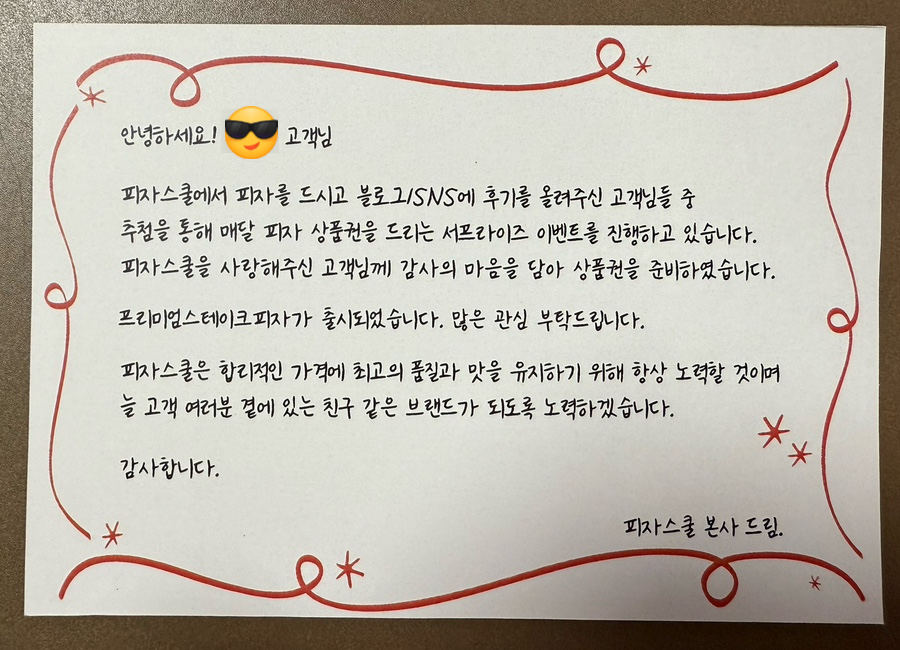 안녕하세요! 😎 고객님
피자스쿨에서 피자를 드시고 블로그/SNS에 후기를 올려주신 고객님들 중
추첨을 통해 매달 피자 상품권을 드리는 서프라이즈 이벤트를 진행하고 있습니다.
피자스쿨을 사랑해주신 고객님께 감사의 마음을 담아 상품권을 준비하였습니다.
프리미엄스테이크피자가 출시되었습니다. 많은 관심 부탁드립니다.
피자스쿨은 합리적인 가격에 최고의 품질과 맛을 유지하기 위해 항상 노력할 것이며
늘 고객 여러분 곁에 있는 친구 같은 브랜드가 되도록 노력하겠습니다.
감사합니다.
피자스쿨 본사 드림.